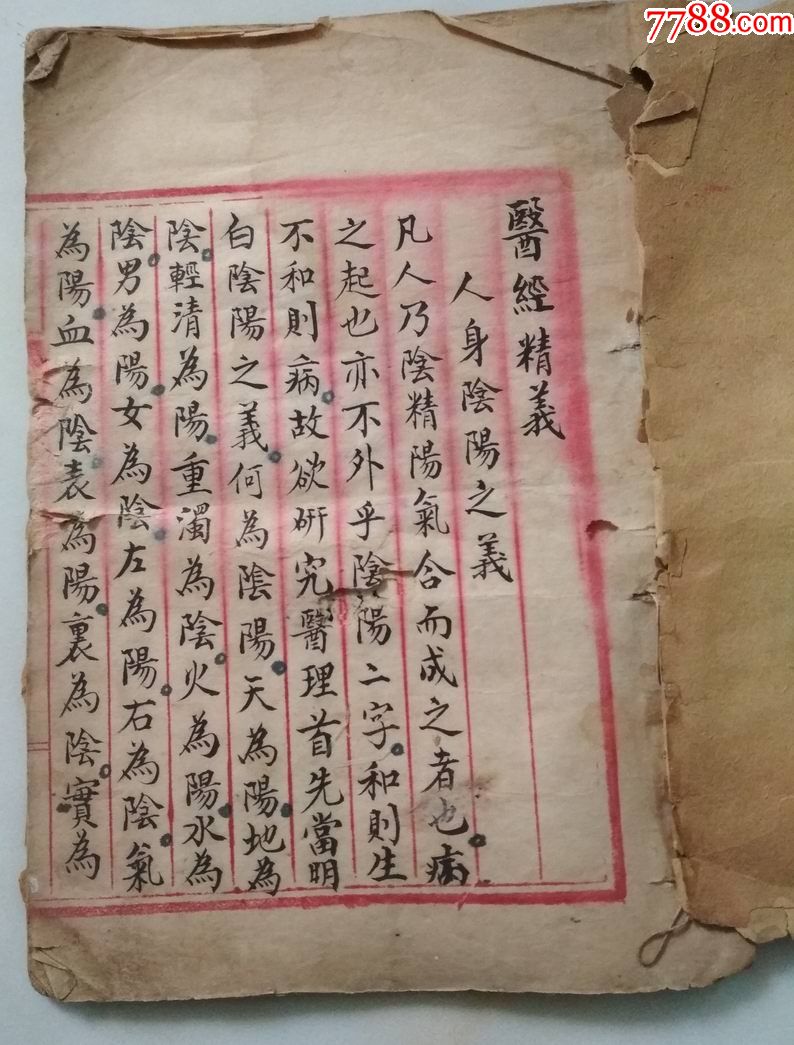 7788.com
醫經精義
人身陰陽之義
凡人乃陰精陽氣合而成之者也。病
之起也亦不外乎陰陽二字。和則生
不和則病。故欲研究醫理首先當明
白陰陽之義。何為陰陽。天為陽。地為
陰。輕清為陽。重濁為陰。火為陽。水為
陰。男為陽。女為陰。左為陽。右為陰。氣
為陽。血為陰。表為陽。裏為陰。實為